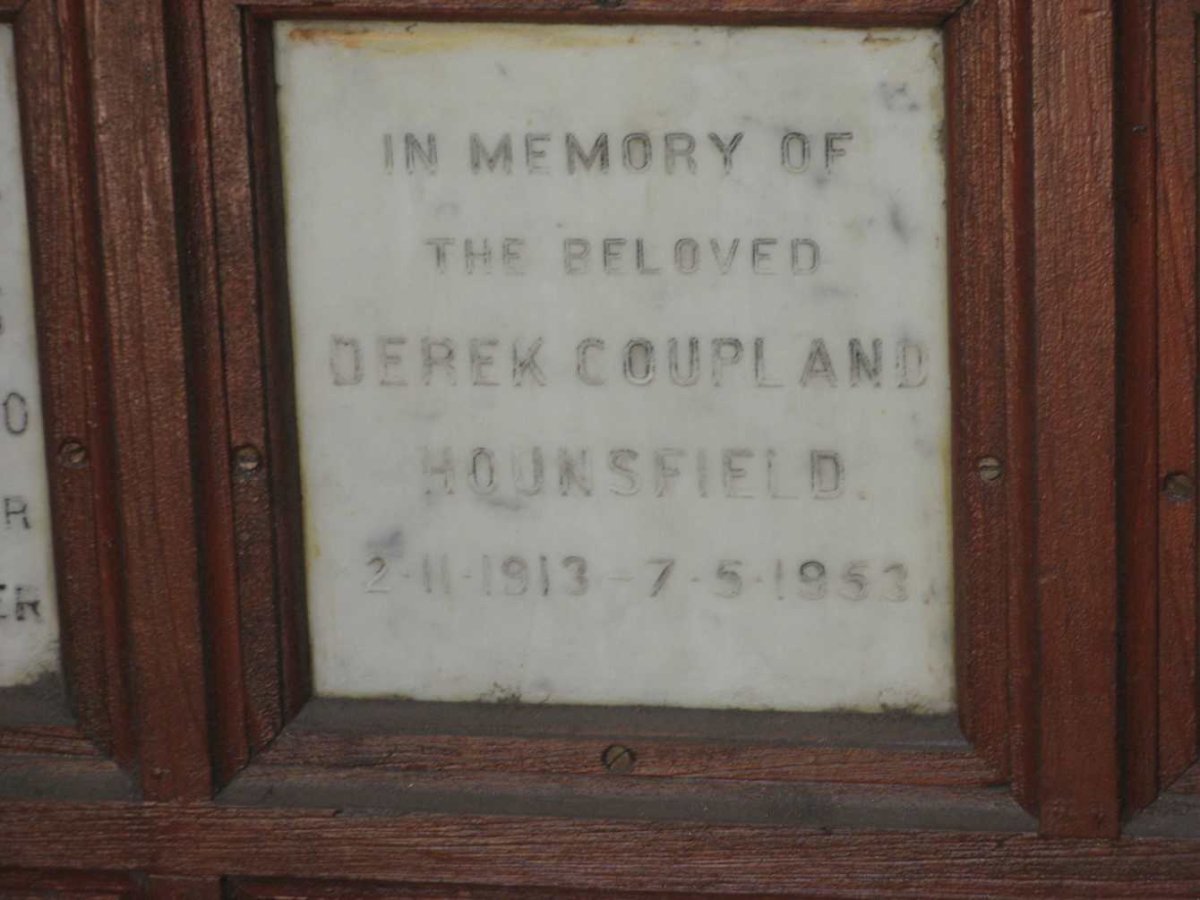 IN MEMORY OF
THE BELOVED
DEREK COUPLAND
HOUNSFIELD.
2-11-1913-7-5-1953.